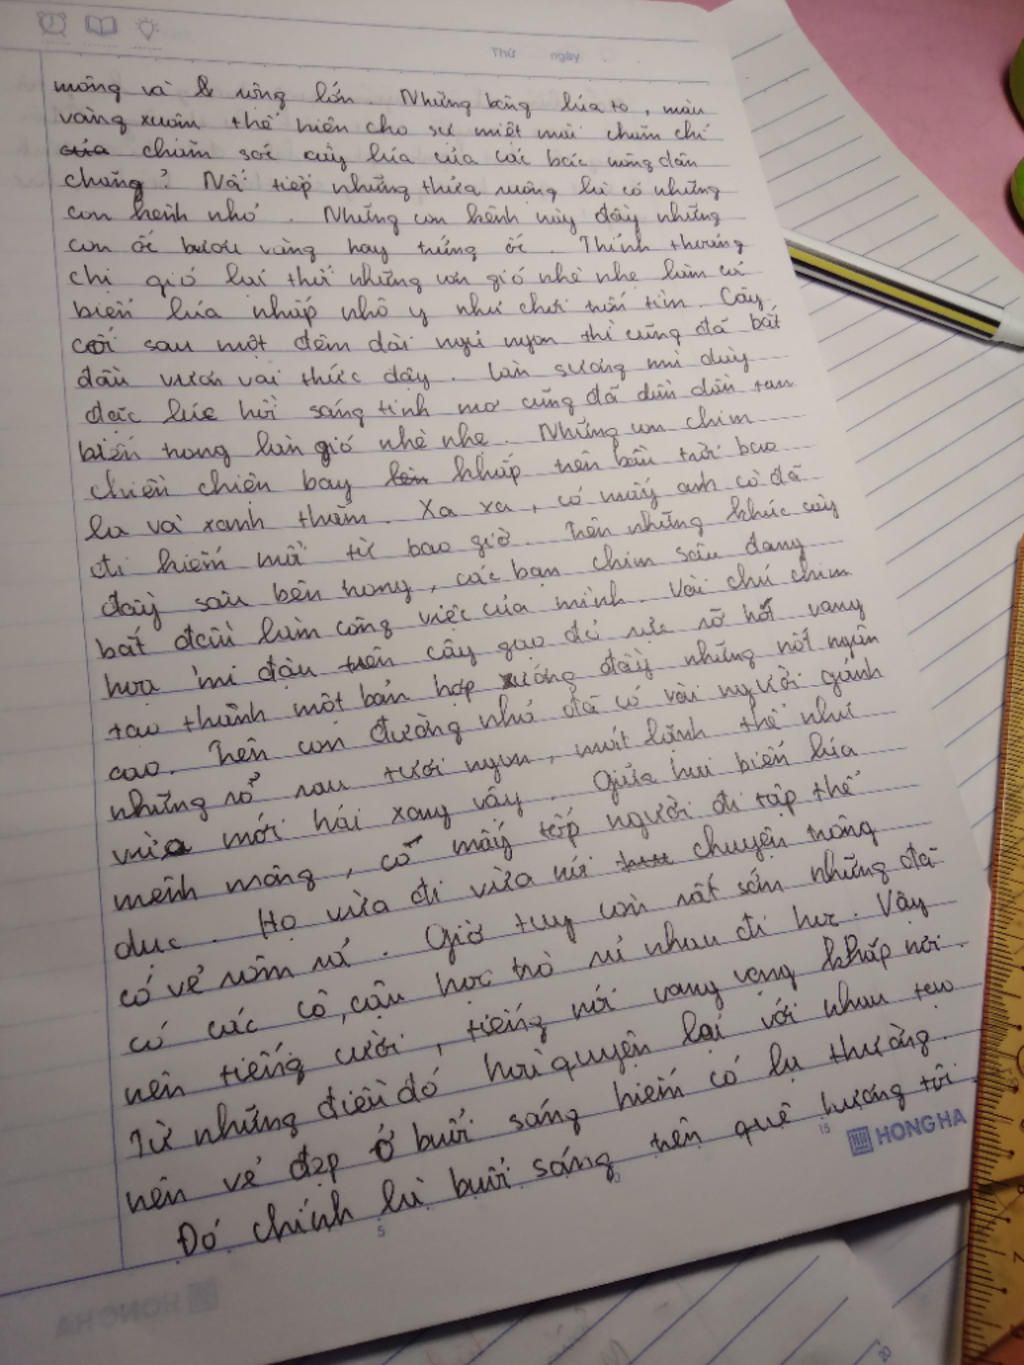 Thứ ngày
mông và & rộng lớn. Những bông lúa to, màu
vàng xuộm thể hiện cho sự miệt mài chăm chỉ
chăm sóc cây lúa của các bác nông dân
chăng? Nối tiếp những thửa ruộng là có những
con kênh nhỏ. Những con kênh này đầy những
con ốc bươu vàng hay trứng ốc. Thỉnh thoảng
chị gió lại thổi những cơn gió nhè nhẹ làm cả
biển lúa nhấp nhô y như chơi trốn tìm. Cây
cối sau một đêm dài ngủ ngon thì cũng đã bắt
đầu vươn vai thức dậy. Làn sương mù dày
đặc lúc hồi sáng tinh mơ cũng đã dần dần tan
biến trong làn gió nhè nhẹ. Những con chim
chiền chiện bay khắp trên bầu trời bao
la và xanh thẳm. Xa xa, có mấy anh cò đã
đi kiếm mồi từ bao giờ. Trên những khúc cây
đầy sâu bên trong, các bạn chim sâu đang
bắt đầu làm công việc của mình. Vài chú chim
họa mi đậu trên cây gạo đỏ rực rỡ hót vang
tạo thành một bản hợp xướng đầy những nốt ngân
cao. Trên con đường nhỏ đã có vài người gánh
những rổ rau tươi ngon, mát lành thể như
vừa mới hái xong vậy. Giữa hai biển lúa
mênh mông, có mấy tốp người đi tập thể
dục. Họ vừa đi vừa nói chuyện trông
có vẻ rôm rả. Giờ tuy còn rất sớm nhưng đã
có các cô, cậu học trò rủ nhau đi học. Vậy
nên tiếng cười, tiếng nói vang vọng khắp nơi.
Từ những điều đó hòa quyện lại với nhau tạo
nên vẻ đẹp ở buổi sáng hiếm có lạ thường.
Đó chính là buổi sáng trên quê hương tôi.
5
15
HONG HA
HONG HA
20